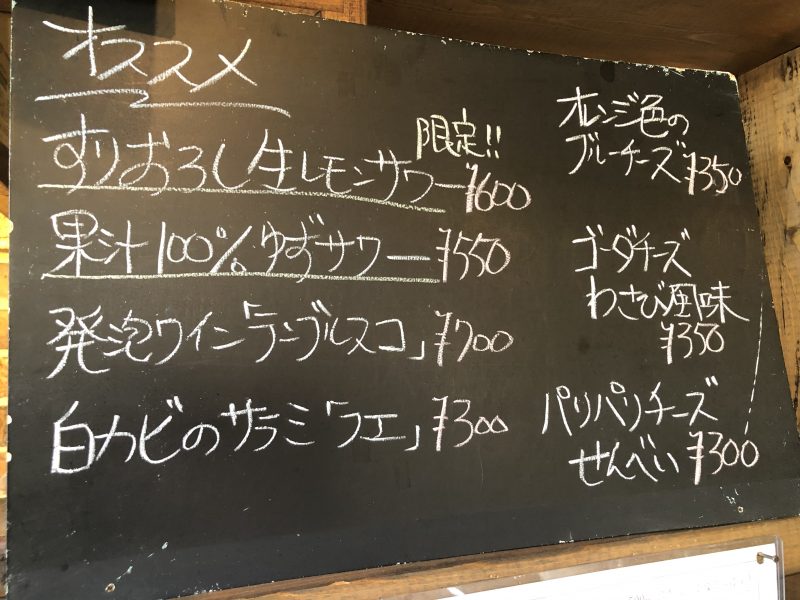 オススメ
限定!!
すりおろし生レモンサワー¥600
果汁100%ゆずサワー¥550
発泡ワイン「ランブルスコ」¥700
白カビのサラミ「フエ」¥300
オレンジ色の
ブルーチーズ¥350
ゴーダチーズ
わさび風味
¥350
パリパリチーズ
せんべい¥300